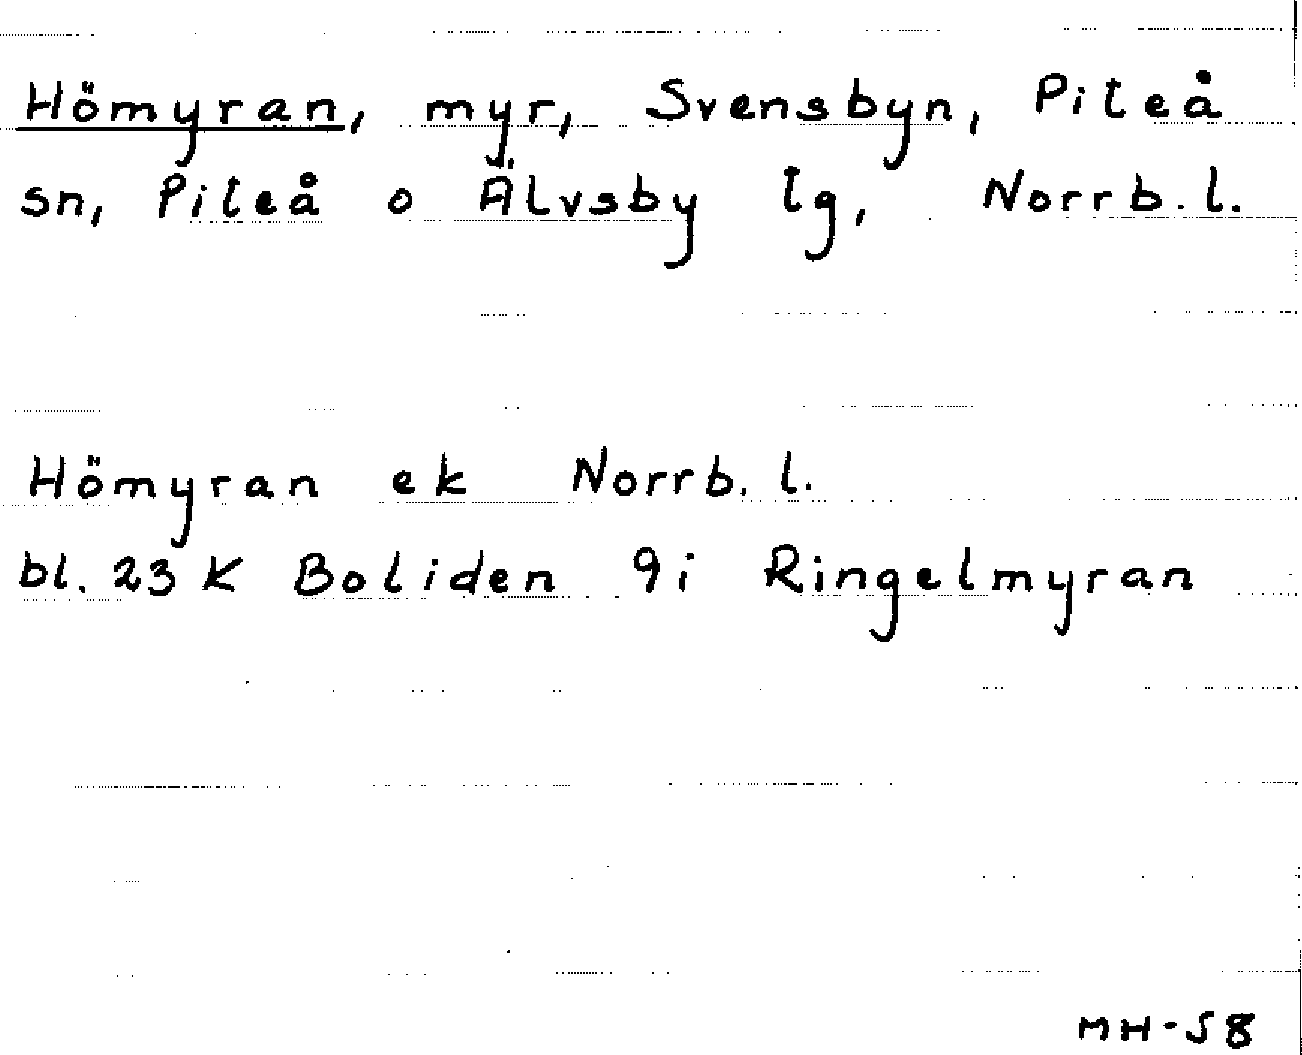 Hömyran, myr, Svensbyn, Piteå
sn, Piteå o Älvsby tg, Norrb. l.
Hömyran ek Norrb. l.
bl. 23 K Boliden 9i Ringelmyran
MH-58